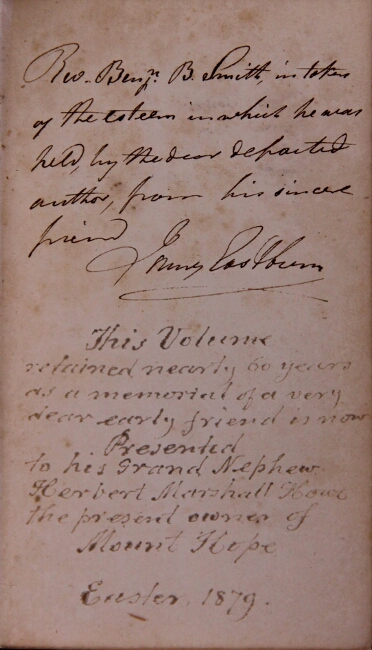 Rev. Benjn. B. Smith, in token
of the esteem in which he was
held, by the dear departed
author, from his sincere
friend
James Eastburn
This Volume
retained nearly 60 years
as a memorial of a very
dear early friend is now
Presented
to his Grand Nephew
Herbert Marshall Howe
the present owner of
Mount Hope
Easter, 1879.